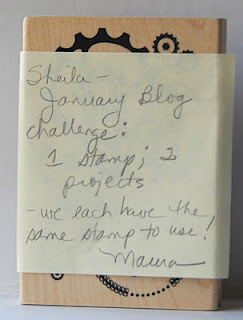 Sheila -
January Blog
challenge:
1 stamp; 2
projects
- we each have the
same stamp to use!
Maura